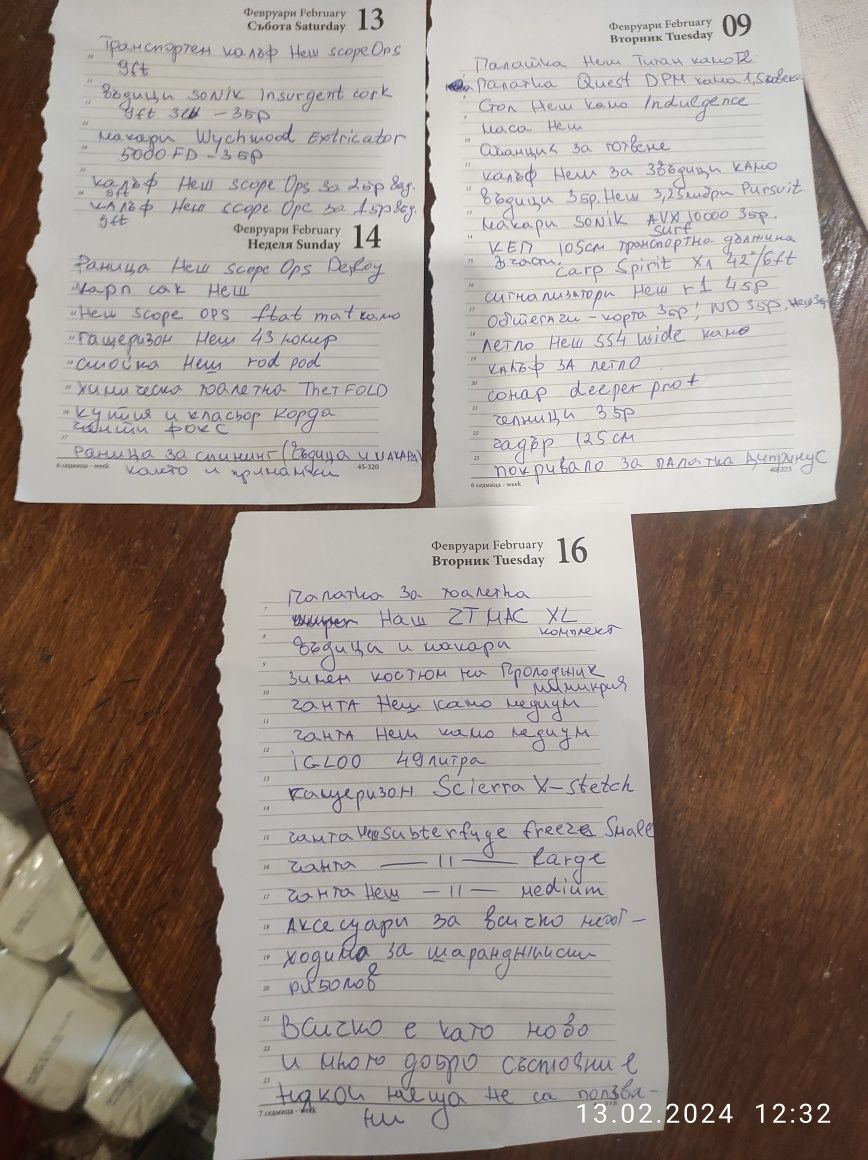 Февруари February 13
Събота Saturday
Транспортен калъф Неш scope Ops
9ft
Въдици SONIK Insurgent cork
9ft 3lb - 3бр
Макари Wychwood Extricator
5000 FD - 3бр
Калъф Неш scope Ops за 2бр въд.
9ft
Калъф Неш scope Opc за 1бр въд.
9ft
Февруари February 14
Неделя Sunday
Раница Неш scope Ops Deploy
Карп сак Неш
Неш scope OPS flat mat камо
Гащеризон Неш 43 номер
Стойка Неш rod pod
Химическа тоалетна Thet FOLD
Кутия и класьор Корда
чанти фокс
Раница за спининг (въдица и макара)
което и примамки
6 седмица - week 45-320
Февруари February 09
Вторник Tuesday
Палатка Неш Титан камо T2
Палатка Quest DPM камо 1,5 човека
Стол Неш камо Indulgence
маса Неш
станция за готвене
калъф Неш за 3 въдици камо
Въдици 3бр. Неш 3,25 либри Pursuit
макари SONIK AVX 10000 3бр.
surf
КЕП 105см транспортна дължина
3 части. Carp Spirit X1 42"/6ft
сигнализатори Неш r1 4бр
Обтегачи - корта 3бр; ND 3бр, Неш 3бр
легло Неш SS4 wide камо
калъф за легло
сонар deeper pro+
челници 3бр
чадър 125см
покривало за палатка Ципринус
6 седмица - week 40-325
Февруари February 16
Вторник Tuesday
Палатка за тоалетна
Наш ZT MAC XL
Въдици и макари комплект
Зимен костюм на Прологджик
мимикрия
чанта Неш камо медиум
чанта Неш камо медиум
iGLOO 49 литра
Кащеризон Scierra X-stetch
чанта Неш subterfuge freeze Small
чанта — 11 — Large
чанта Неш — 11 — medium
Аксесуари за всичко необ-
ходимо за шаранджийски
риболов
Всичко е като ново
и много добро състояние
някои неща не са ползва-
ни
7 седмица - week
13.02.2024 12:32